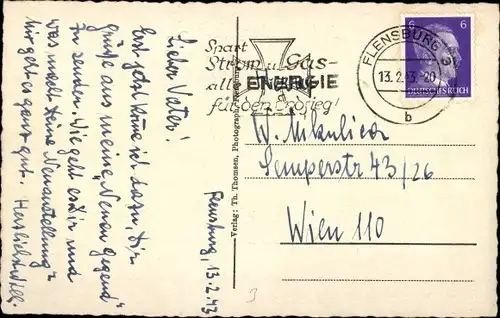 Lieber Vater!
Erst jetzt komme ich dazu, Dir
Grüße aus meiner "Neuen Gegend"
zu senden. Wie geht es Dir und
was macht Deine Neuanstellung?
Mir geht es ganz gut. Herzlichst Willi.
Flensburg, 13.2.43
Verlag: Th. Thomsen, Photograph, Flensburg
Spart
Strom u. Gas-
ENERGIE
für den Endsieg!
FLENSBURG 3
13.2.43.-20
b
6 6
DEUTSCHES REICH
W. Mikulicar
Semperstr 43/26
Wien 110
3